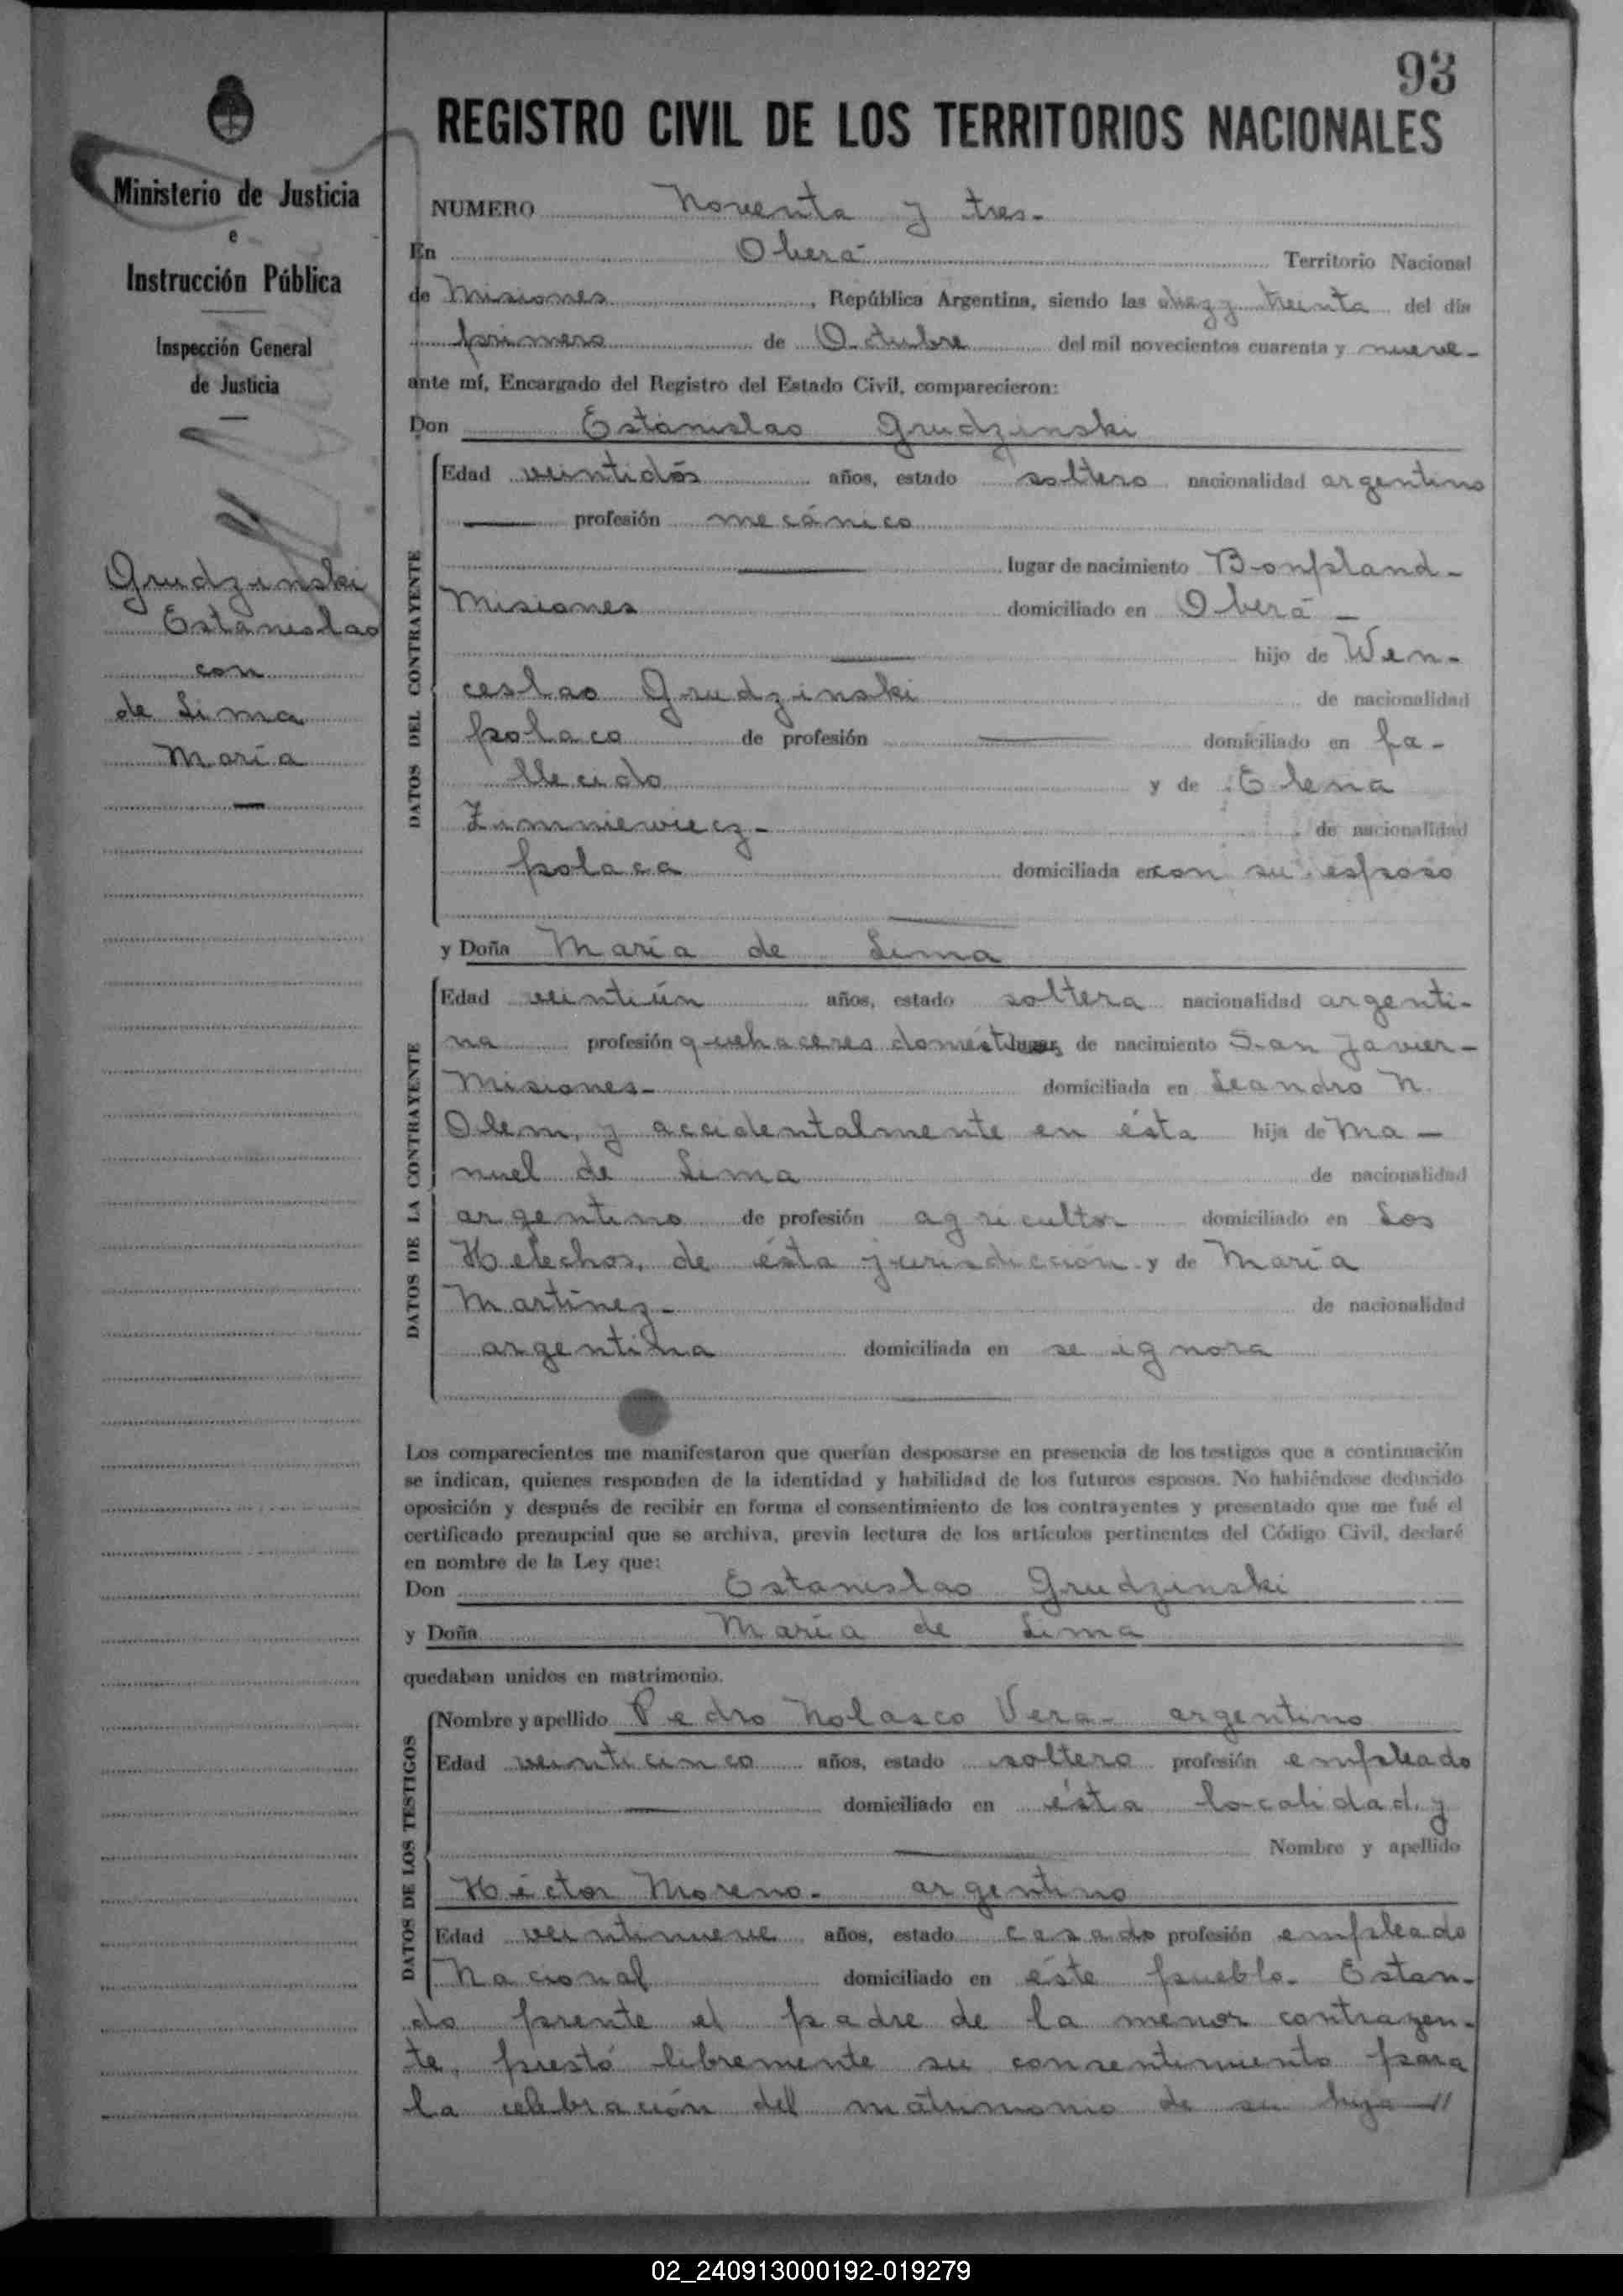 93
REGISTRO CIVIL DE LOS TERRITORIOS NACIONALES
Ministerio de Justicia
e
Instrucción Pública
Inspección General
de Justicia
Grudzinski
Estanislao
con
de Lima
María
NUMERO Noventa y tres.
En Oberá Territorio Nacional
de Misiones, República Argentina, siendo las diez y treinta del día
primero de Octubre del mil novecientos cuarenta y nueve-
ante mí, Encargado del Registro del Estado Civil, comparecieron:
Don Estanislao Grudzinski
DATOS DEL CONTRAYENTE
Edad veintidós años, estado soltero nacionalidad argentino
profesión mecánico
lugar de nacimiento Bonpland-
Misiones domiciliado en Oberá
hijo de Wen-
ceslao Grudzinski de nacionalidad
polaco de profesión domiciliado en fa-
llecido y de Elena
Zimniewicz- de nacionalidad
polaca domiciliada en con su esposo
y Doña María de Lima
DATOS DE LA CONTRAYENTE
Edad veintiún años, estado soltera nacionalidad argenti-
na profesión quehaceres domésticos lugar de nacimiento San Javier-
Misiones- domiciliada en Leandro N.
Alem, y accidentalmente en ésta hija de Ma-
nuel de Lima de nacionalidad
argentino de profesión agricultor domiciliado en Los
Helechos, de ésta jurisdicción y de María
Martínez- de nacionalidad
argentina domiciliada en se ignora
Los comparecientes me manifestaron que querían desposarse en presencia de los testigos que a continuación
se indican, quienes responden de la identidad y habilidad de los futuros esposos. No habiéndose deducido
oposición y después de recibir en forma el consentimiento de los contrayentes y presentado que me fué el
certificado prenupcial que se archiva, previa lectura de los artículos pertinentes del Código Civil, declaré
en nombre de la Ley que:
Don Estanislao Grudzinski
y Doña María de Lima
quedaban unidos en matrimonio.
DATOS DE LOS TESTIGOS
Nombre y apellido Pedro Nolasco Vera- argentino
Edad veinticinco años, estado soltero profesión empleado
domiciliado en ésta localidad, y
Nombre y apellido
Héctor Moreno- argentino
Edad veintinueve años, estado casado profesión empleado
Nacional domiciliado en éste pueblo. Estan-
do prente el padre de la menor contrayen-
te, prestó libremente su consentimiento para
la celebración del matrimonio de su hija //
02_240913000192-019279